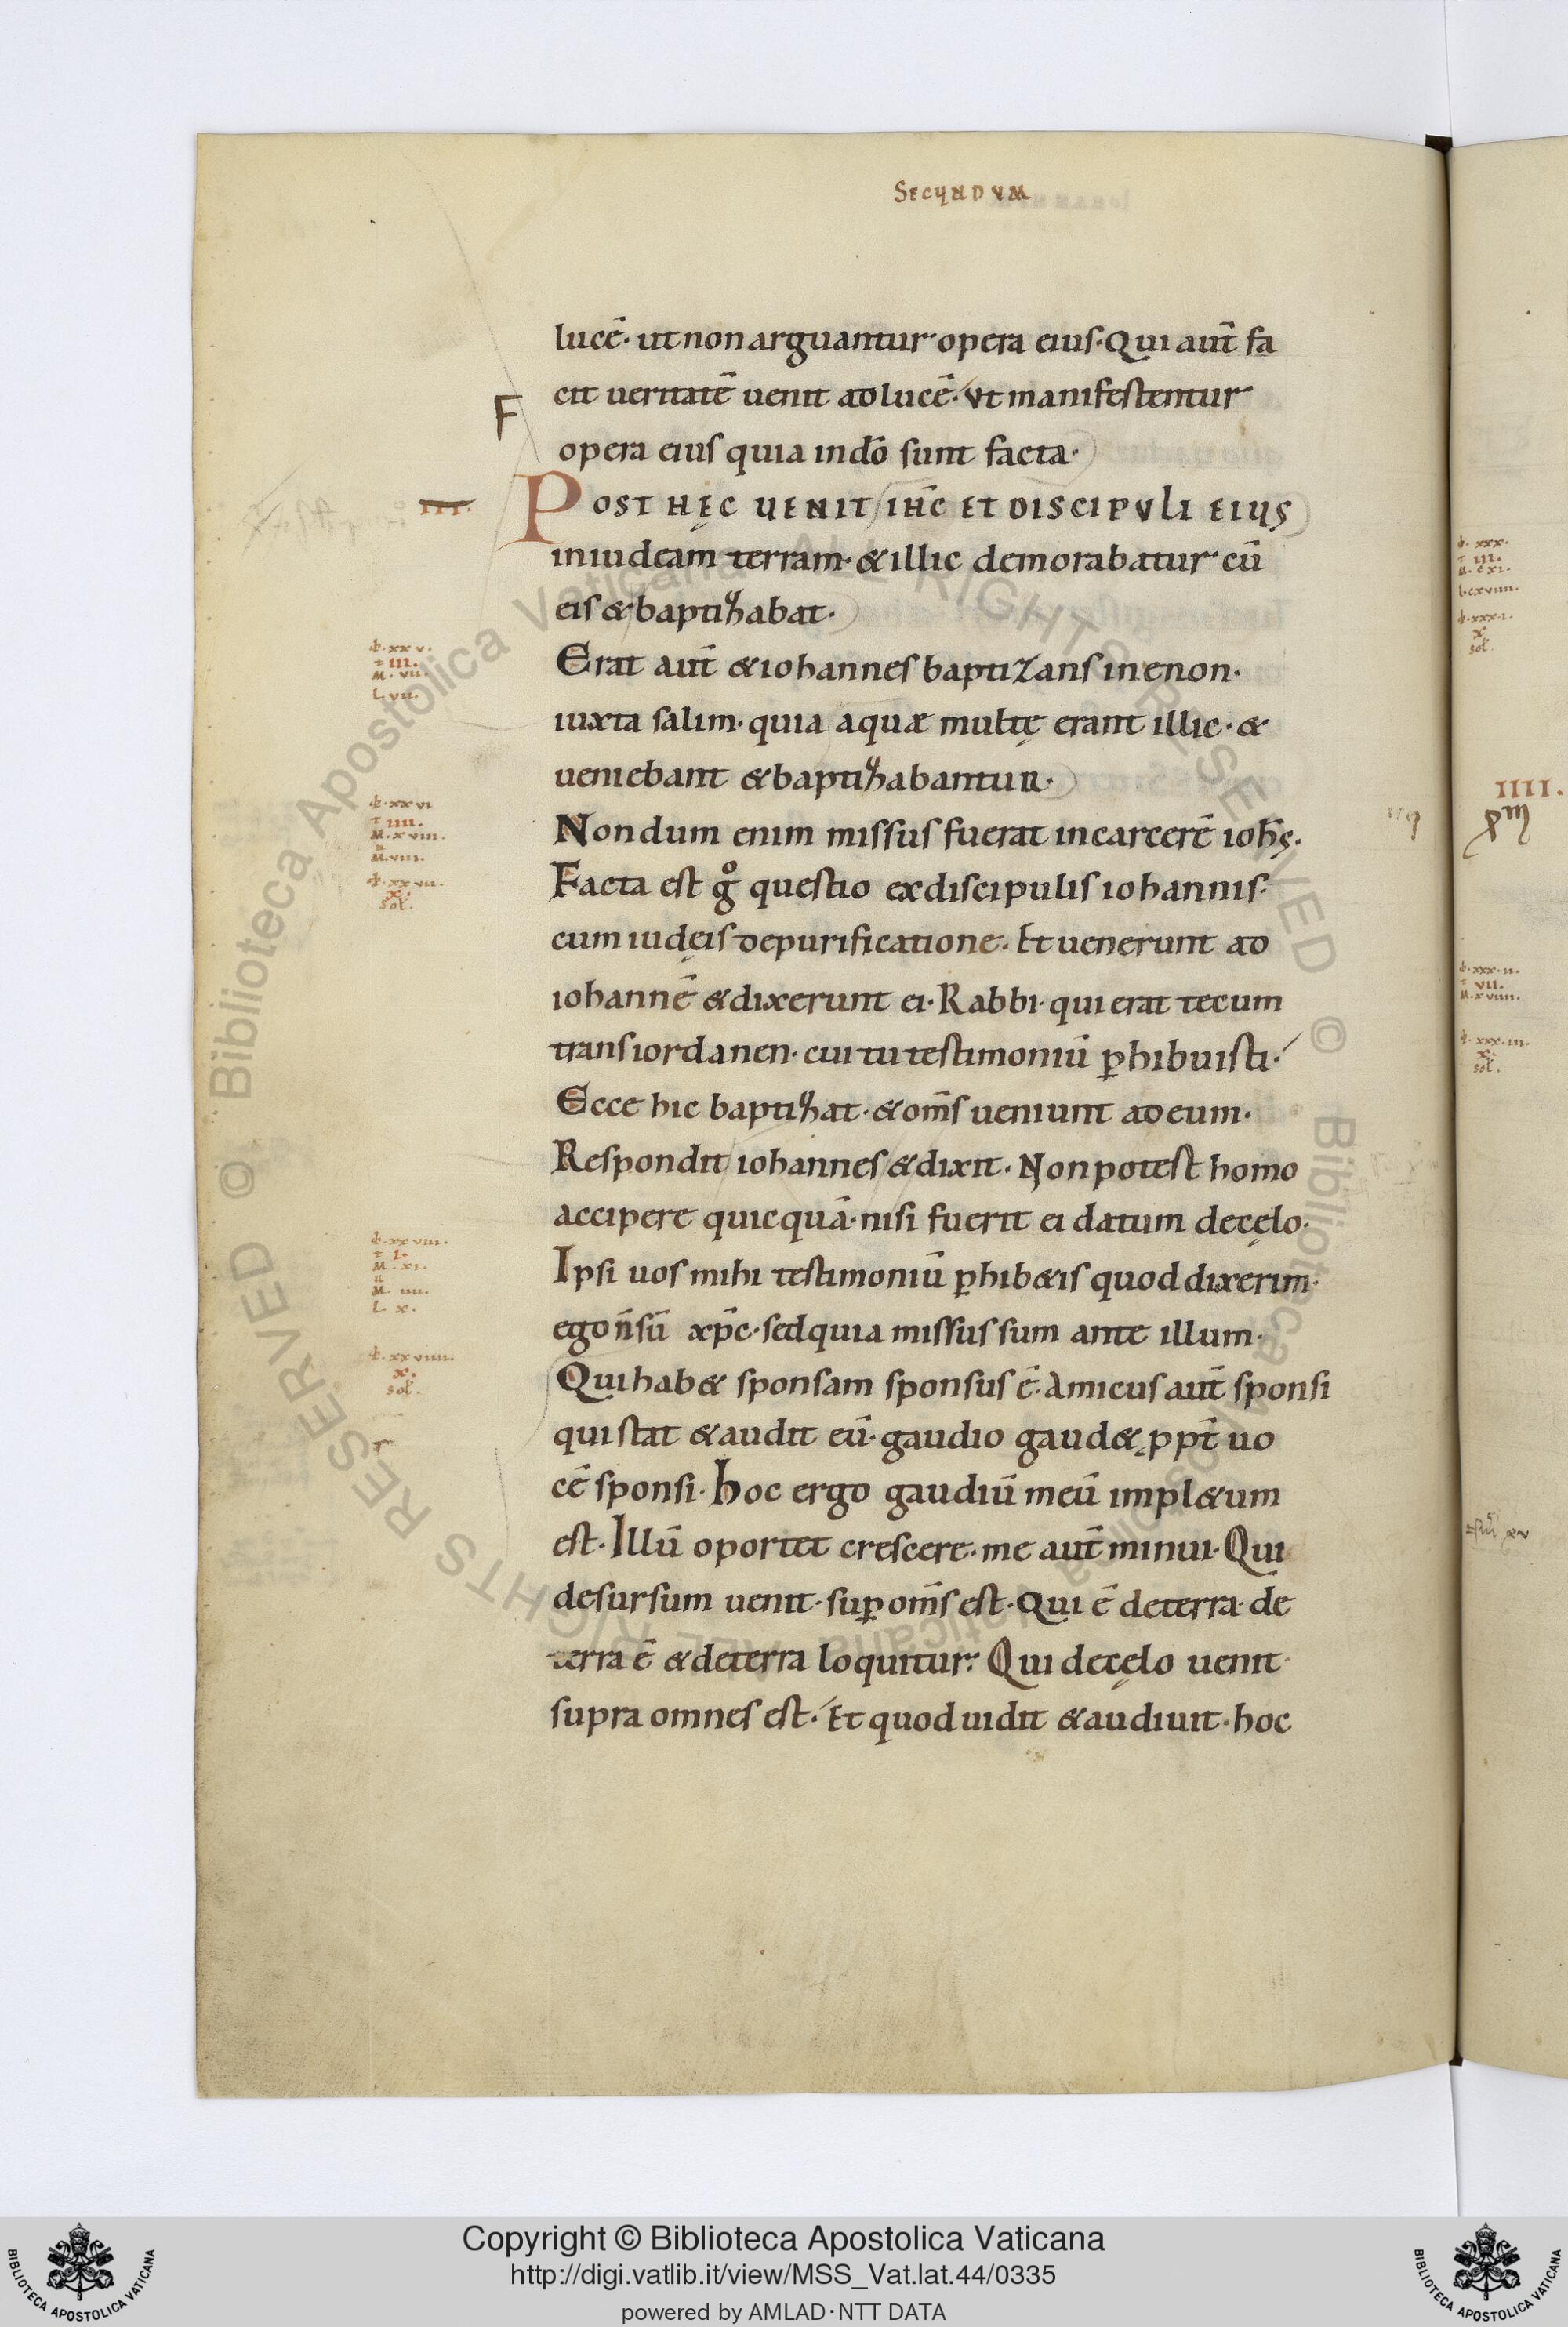 SECUNDUM
lucē· ut non arguantur opera eius· Qui aut̄ fa
F
cit ueritatē uenit ad lucē· ut manifestentur
opera eius quia in dō sunt facta·
III.
POST HĘC UENIT IHC̄ ET DISCIPULI EIUS
in iudeam terram· & illic demorabatur cū
eis & baptizabat·
Erat aut̄ & iohannes baptizans in enon·
iuxta salim· quia aquæ multę erant illic· &
ueniebant & baptizabantur·
Nondum enim missus fuerat in carcerē ioh̄s·
Facta est gͦ questio ex discipulis iohannis·
cum iudęis de purificatione· Et uenerunt ad
iohannē & dixerunt ei· Rabbi· qui erat tecum
trans iordanen· cui tu testimoniū ꝑhibuisti·
Ecce hic baptizat· & om̄s ueniunt ad eum·
Respondit iohannes & dixit· Non potest homo
accipere quicquā· nisi fuerit ei datum de cęlo·
Ipsi uos mihi testimoniū ꝑhib&is quod dixerim·
ego n̄ sū xp̄c· sed quia missus sum ante illum·
Qui hab& sponsam sponsus ē· Amicus aut̄ sponsi
qui stat & audit eū· gaudio gaud& ꝓpt̄ uo
cē sponsi· hoc ergo gaudiū meū impl&um
est· Illū oportet crescere· me aut̄ minui· Qui
desursum uenit· suꝑ om̄s est· Qui ē de terra· de
terra ē & de terra loquitur· Qui de cęlo uenit·
supra omnes est· Et quod uidit & audiuit· hoc
ȶ· xxv·
+ III·
M· VII·
L· VII·
ȶ· xxvi
+ IIII·
M· xviii·
M· viii·
ȶ· xxvii·
x·
sol̄·
ȶ· xxviii·
+ I·
M· xi·
M· iiii·
L· x·
ȶ· xxviiii·
x·
sol̄·
IIII·
Copyright © Biblioteca Apostolica Vaticana
http://digi.vatlib.it/view/MSS_Vat.lat.44/0335
powered by AMLAD·NTT DATA
BIBLIOTECA APOSTOLICA VATICANA
BIBLIOTECA APOSTOLICA VATICANA
© Biblioteca Apostolica Vaticana ALL RIGHTS RESERVED
© Biblioteca Apostolica Vaticana ALL RIGHTS RESERVED